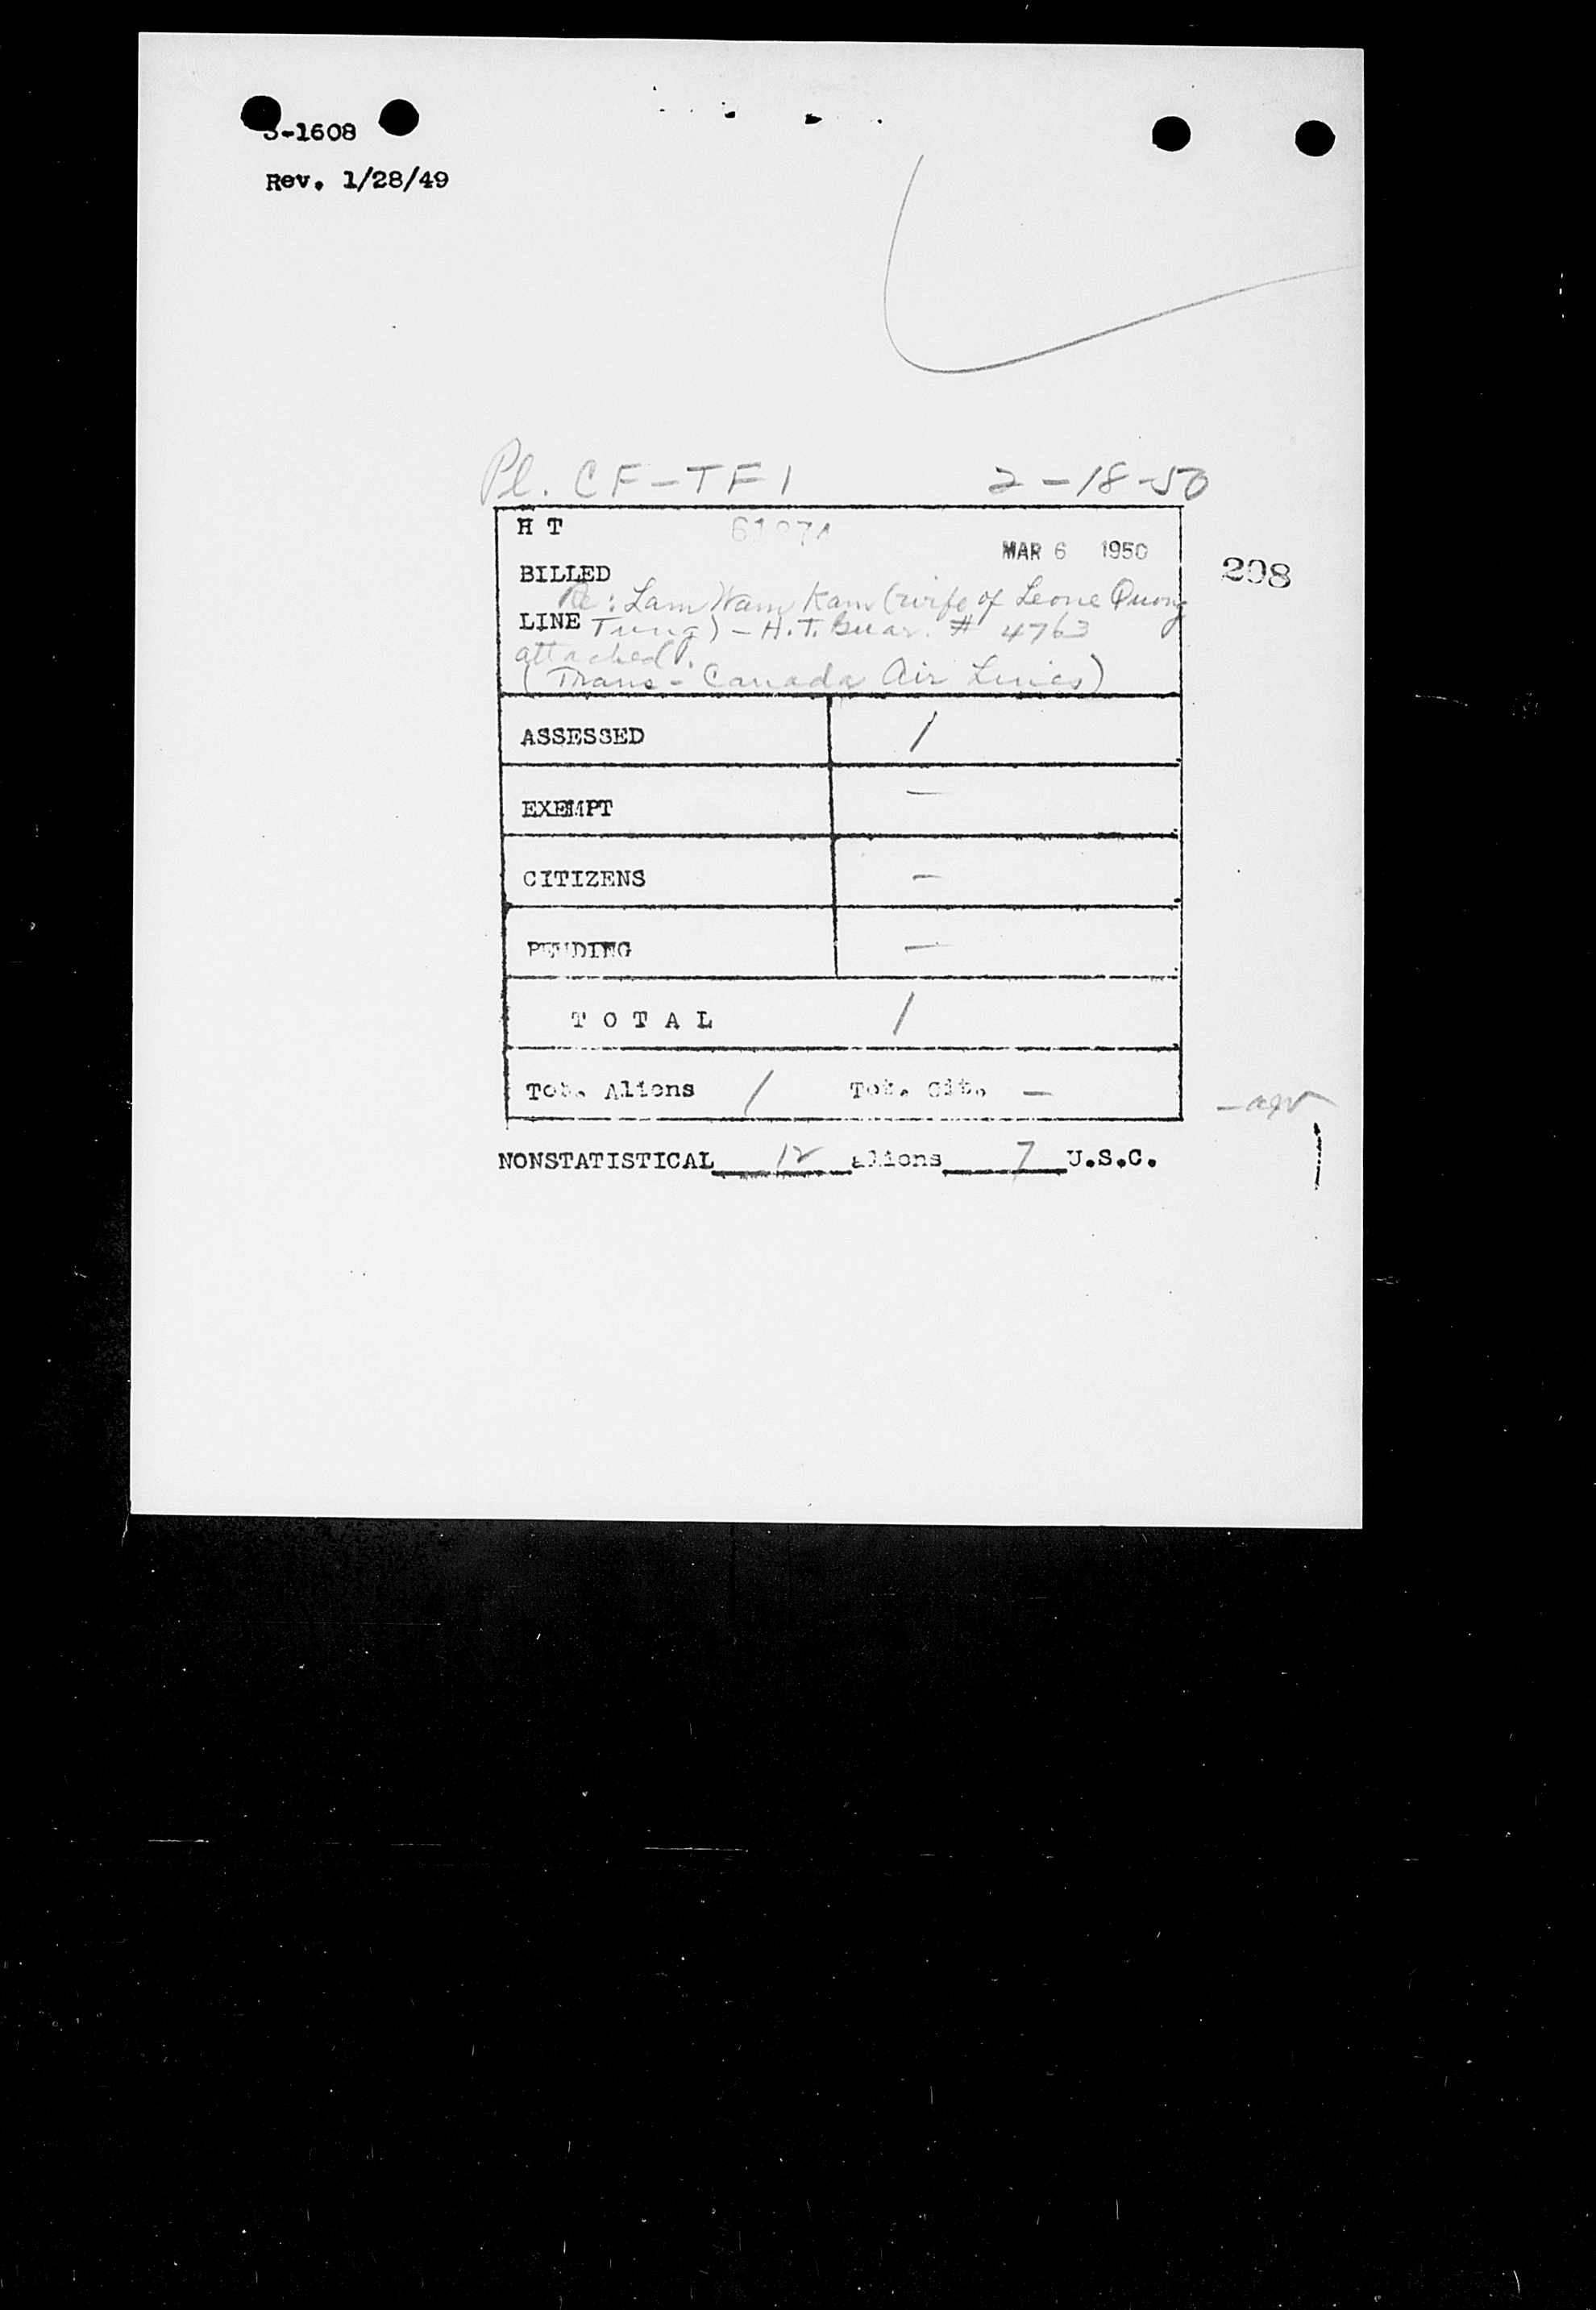 -1608
Rev. 1/28/49
Pl. CF-TF1 2-18-50
H T
MAR 6 1950
BILLED 208
Re: Lam Wam Kam (wife of Leone Quong
LINE Tung) - H.T. Guar. # 4763
attached.
(Trans-Canada Air Lines)
ASSESSED 1
EXEMPT -
CITIZENS -
PENDING -
T O T A L 1
Tot. Aliens 1 Tot. Cit. -
NONSTATISTICAL 12 aliens 7 U.S.C.